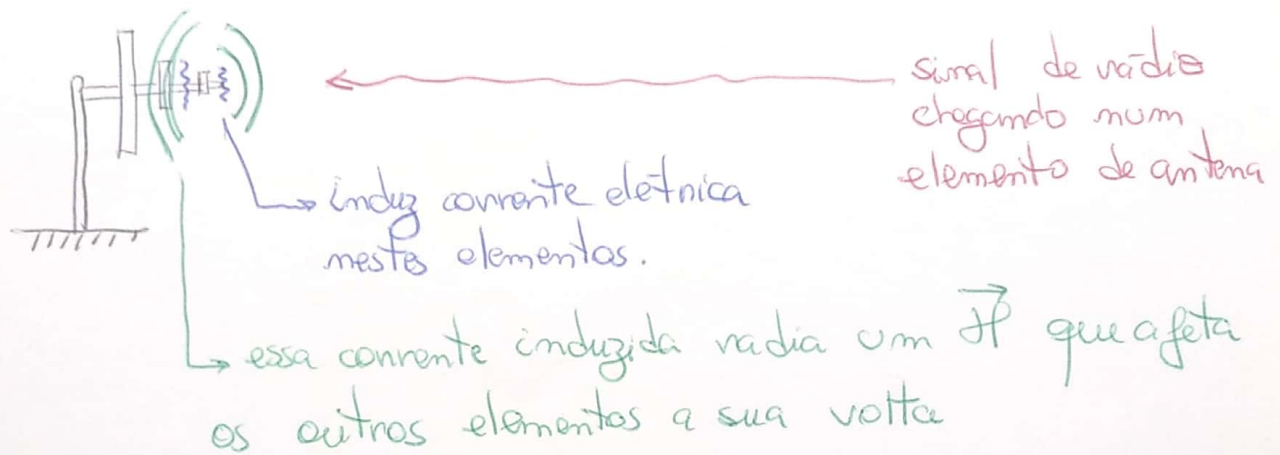 sinal de rádio
chegando num
elemento de antena
induz corrente elétrica
nestes elementos.
essa corrente induzida radia um H que afeta
os outros elementos a sua volta